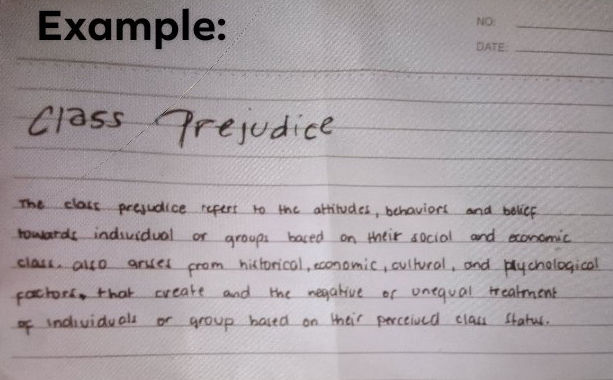 Example:
NO:
DATE:
Class Prejudice
The class prejudice refers to the attitudes, behaviors and belief
towards individual or groups based on their social and economic
class. also arises from historical, economic, cultural, and psychological
factors, that create and the negative or unequal treatment
of individuals or group based on their perceived class status.